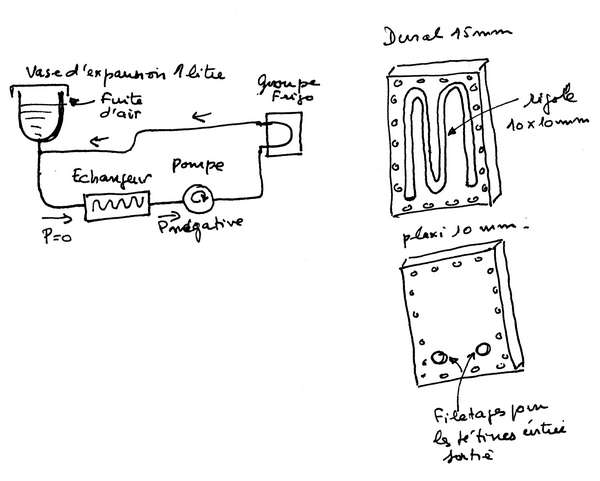 Vase d'expansion 1 litre
Fuite
d'air
Groupe
Frigo
Echangeur
Pompe
P=0
P négative
Dural 15mm
rigole
10x10mm
plexi 10 mm.
Filetages pour
les tétines entrée
sortie